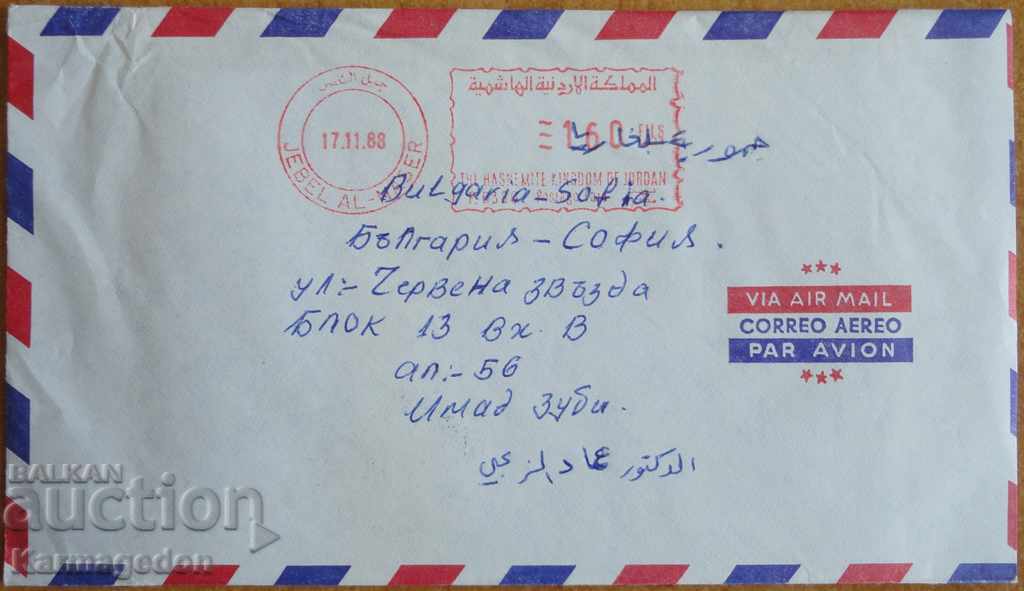 جبل القصر
17.11.88
JEBEL AL-
المملكة الاردنية الهاشمية
160 FILS
THE HASHEMITE KINGDOM OF JORDAN
جمهورية بلغاريا
Bulgaria-Sofia.
България - София.
ул:- Червена звъзда
Блок 13 вх. В
ап:- 56
Имад Зуби.
الدكتور عماد الزعبي
VIA AIR MAIL
CORREO AEREO
PAR AVION
BALKAN
auction
Karmagedon